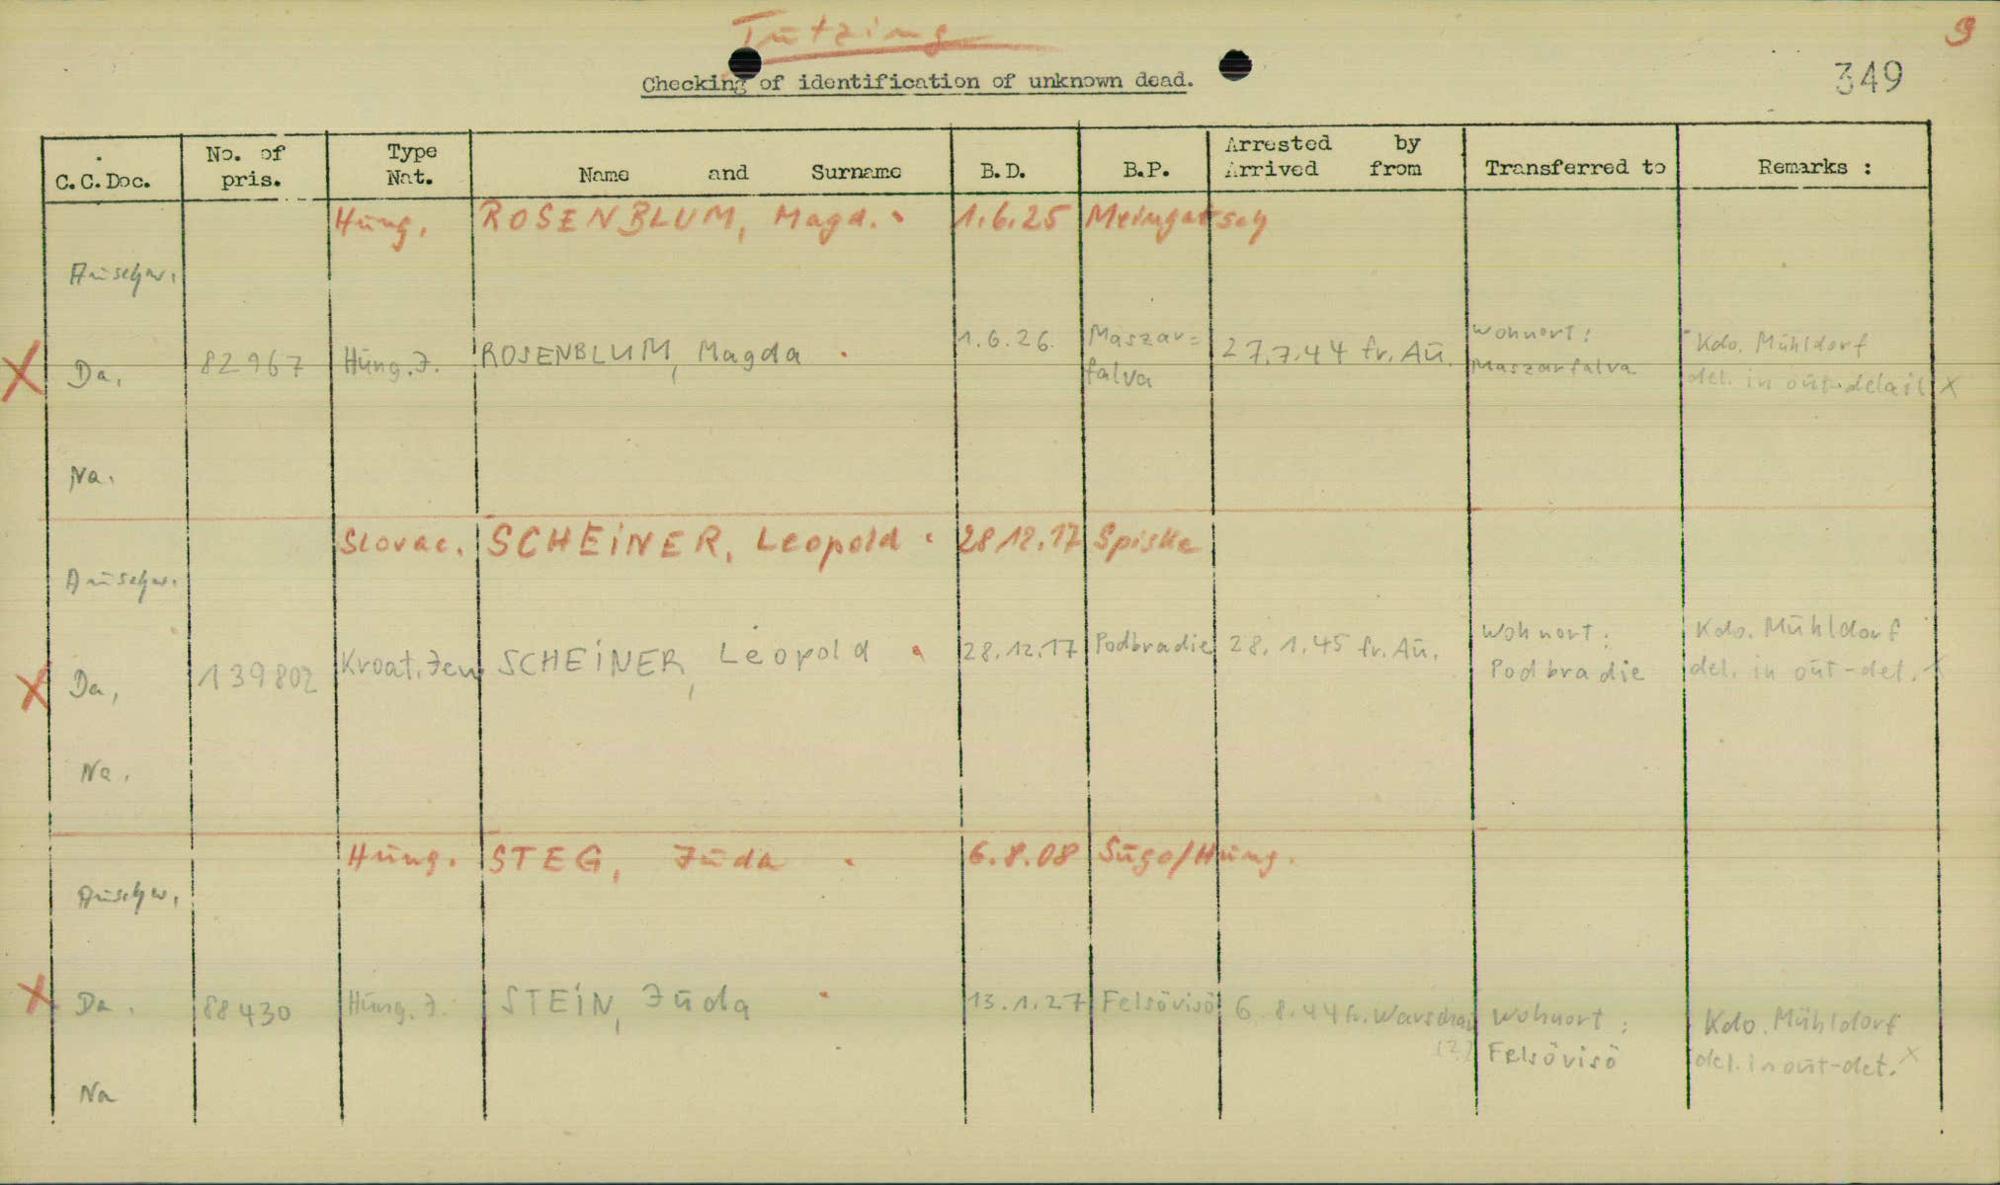 Tutzing
9
Checking of identification of unknown dead.
349
C.C.Doc. No. of pris. Type Nat. Name and Surname B.D. B.P. Arrested by Arrived from Transferred to Remarks :
Hung. ROSENBLUM, Magd. 1.6.25
Auschw.
X Da. 82967 Hung.J. ROSENBLUM, Magda 1.6.26. Maszar= falva 27.7.44 fr. Au. Wohnort: Maszarfalva Kdo. Mühldorf del. in out-detail X
Na.
Slovac. SCHEINER, Leopold 28.12.17 Spiske
Auschw.
X Da, 139802 Kroat. Jew SCHEINER, Leopold 28.12.17 Podbradie 28.1.45 fr. Au. Wohnort: Podbradie Kdo. Mühldorf del. in out-det. X
Na.
Hung. STEG, Juda 6.8.08 Sugo/Hung.
Auschw.
X Da. 88430 Hung. J. STEIN, Juda 13.1.27 Felsövisö 6.8.44 fr. Warschau (?) Wohnort: Felsövisö Kdo. Mühldorf del. in out-det. X
Na